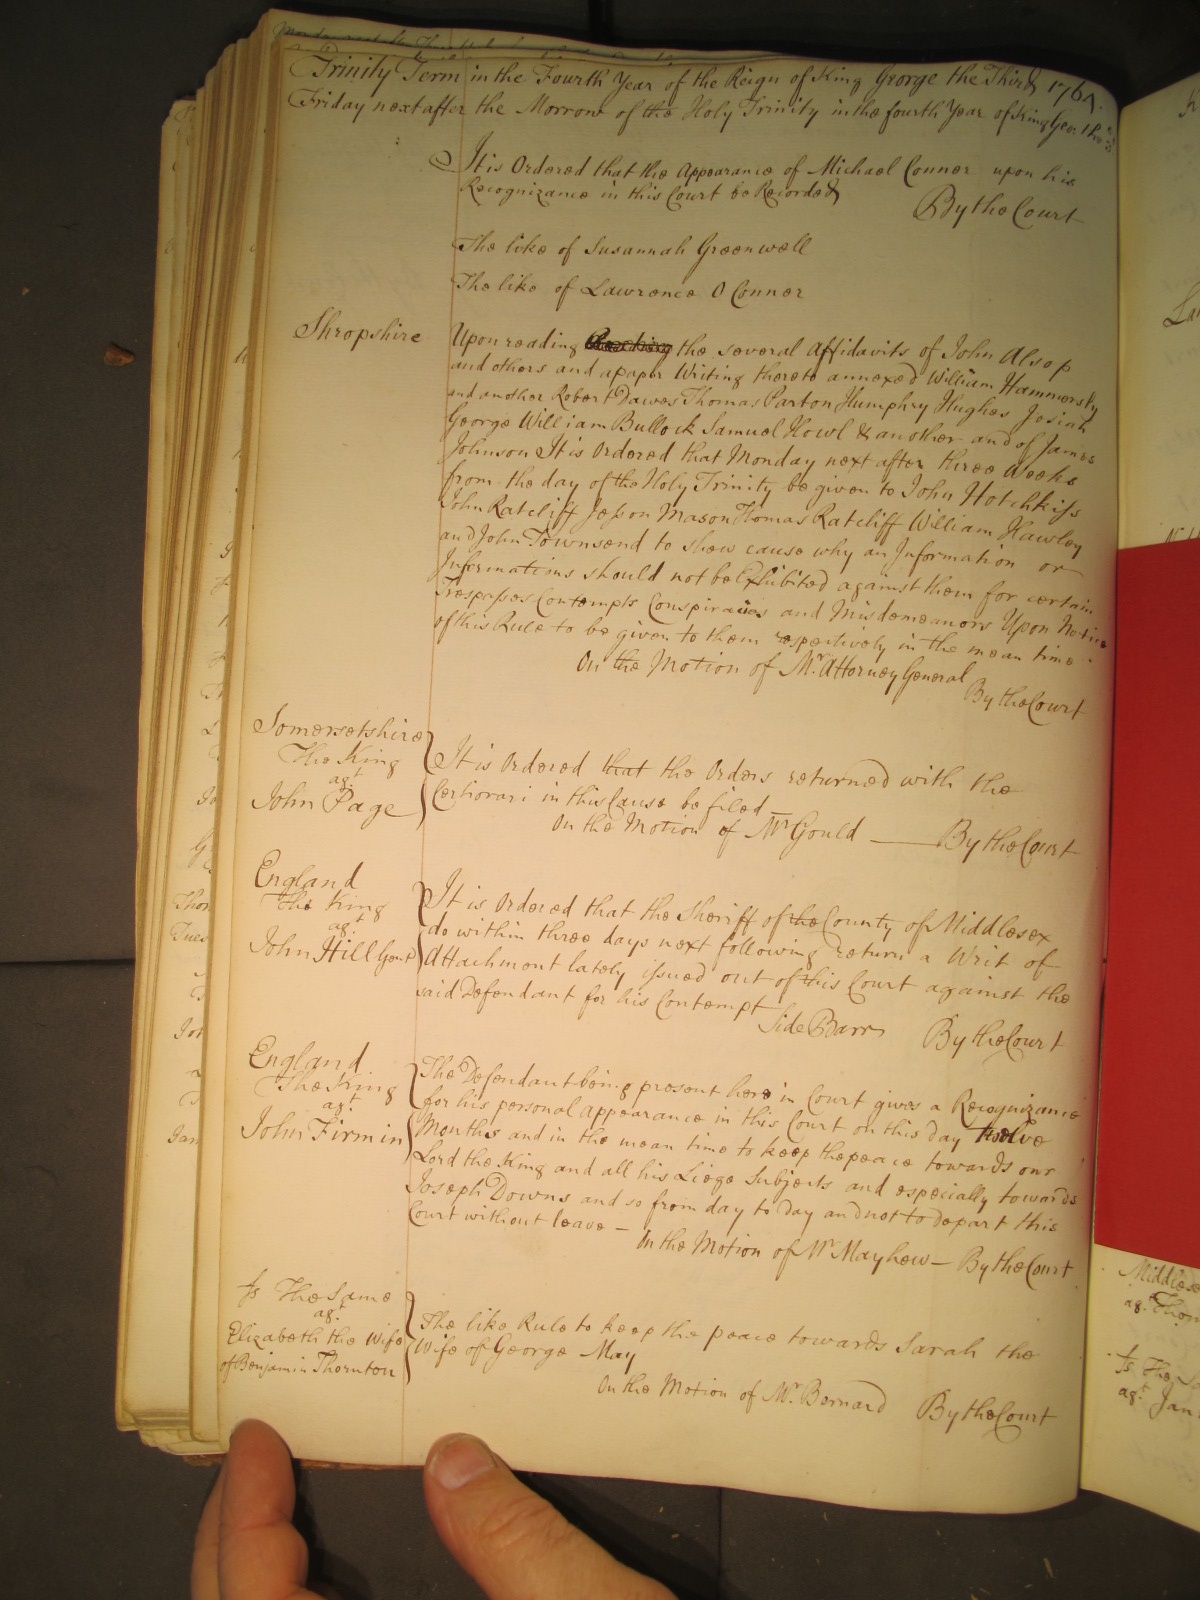 Trinity Term in the Fourth Year of the Reign of King George the Third 1764.
Friday next after the Morrow of the Holy Trinity in the fourth Year of King Geo. the 3.d
It is Ordered that the Appearance of Michael Conner upon his
Recognizance in this Court be Recorded
By the Court
The like of Susannah Greenwell
The like of Lawrence O Conner
Shropshire
Upon reading the several Affidavits of John Alsop
and others and a paper Writing thereto annexed William Hammersly
and another Robert Dawes Thomas Parton Humphry Hughes Josiah
George William Bullock Samuel Howl & another and of James
Johnson It is Ordered that Monday next after three Weeks
from the day of the Holy Trinity be given to John Hotchkiss
John Ratcliff Jesson Mason Thomas Ratcliff William Hawley
and John Townsend to shew cause why an Information or
Informations should not be Exhibited against them for certain
Trespasses Contempts Conspiracies and Misdemeanors Upon Notice
of this Rule to be given to them respectively in the mean time
On the Motion of Mr. Attorney General
By the Court
Somersetshire
The King
agt.
John Page
It is Ordered that the Orders returned with the
Certiorari in this Cause be filed
On the Motion of Mr Gould — By the Court
England
The King
agt.
John Hill Gent
It is Ordered that the Sheriff of the County of Middlesex
do within three days next following return a Writ of
Attachment lately issued out of this Court against the
said Defendant for his Contempt
Side Barr By the Court
England
The King
agt.
John Firmin
The Defendant being present here in Court gives a Recognizance
for his personal appearance in this Court on this day twelve
Months and in the mean time to keep the peace towards our
Lord the King and all his Liege Subjects and especially towards
Joseph Downs and so from day to day and not to depart this
Court without leave —
On the Motion of Mr Mayhew — By the Court
Js The Same
agt.
Elizabeth the Wife
of Benjamin Thornton
The like Rule to keep the peace towards Sarah the
Wife of George May
On the Motion of Mr. Bernard By the Court